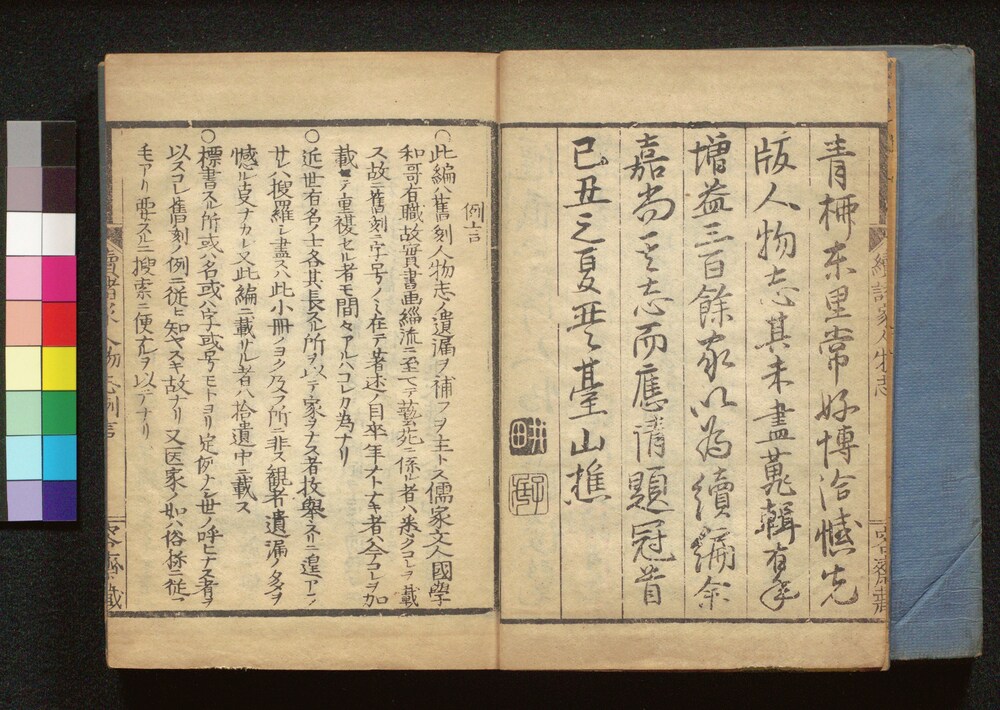 青栁東里常好博洽憾先
版人物志其未盡蒐輯有年
増益三百餘家以為續編余
嘉尚其志而應清題冠首
己丑之夏
臺山樵
例言
○此編ハ舊刻人物志ノ遺漏ヲ補フヲ主トス儒家文人國學
和哥有職故實書画緇流ニ至マテ藝苑ニ係ル者ハ悉クコレヲ載
ス故ニ舊刻ニ字号ノミ在テ著述ノ目卒年オトナキ者ハ今コレヲ加
載シテ重複セル者モ間々アルハコレカ為ナリ
○近世有名ノ士各其長スル所ヲ以テ家ヲナス者枚舉スルニ遑アラ
サレハ搜羅シ盡スハ此小冊ノヨク及フ所ニ非ス観者遺漏ノ多ヲ
憾ル叓ナカレ又此編ニ載サル者ハ拾遺中ニ載ス
○標書スル所或ハ名或ハ字或ハ号モトヨリ定例ナシ世ノ呼ヒナス者ヲ
以スコレ舊刻ノ例ニ從ヒ知ヤスキ故ナリ又医家ノ如ハ俗称ニ從フ
モアリ要スルニ搜索ニ便ナルヲ以テナリ
續諸家人物志例言
續諸家人物志